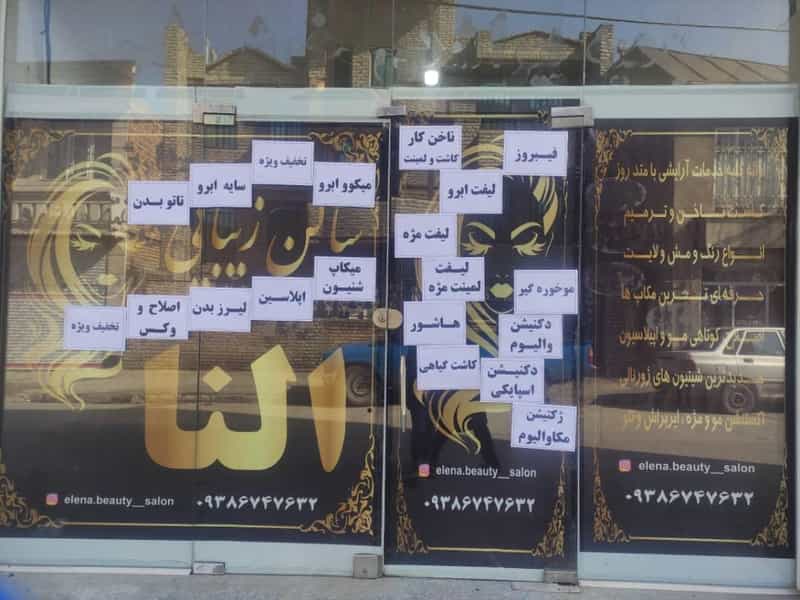 تخفیف ویژه
میکوو ابرو
سایه ابرو
تاتو بدن
سالن زیبایی
میکاپ
شنیون
اپلاسین
لیزر بدن
اصلاح و
وکس
تخفیف ویژه
النا
elena.beauty__salon
۰۹۳۸۶۷۴۷۶۳۲
ناخن کار
کاشت و لمینت
فیبروز
لیفت ابرو
لیفت مژه
لیفت
لمینت مژه
موخوره گیر
هاشور
دکتیشن
والیوم
کاشت گیاهی
دکتیشن
اسپایکی
ژکتیشن
مکاوالیوم
elena.beauty__salon
۰۹۳۸۶۷۴۷۶۳۲
کلیه خدمات آرایشی با متد روز
کاشت ناخن و ترمیم
انواع رنگ و مش و لایت
حرفه ای تخصصی ترین مکاپ ها
کوتاهی مو و اپیلاسیون
جدیدترین شینیون های ژورنالی
اکستنشن مو و مژه ، ایربراش و تتو
elena.beauty__salon
۰۹۳۸۶۷۴۷۶۳۲